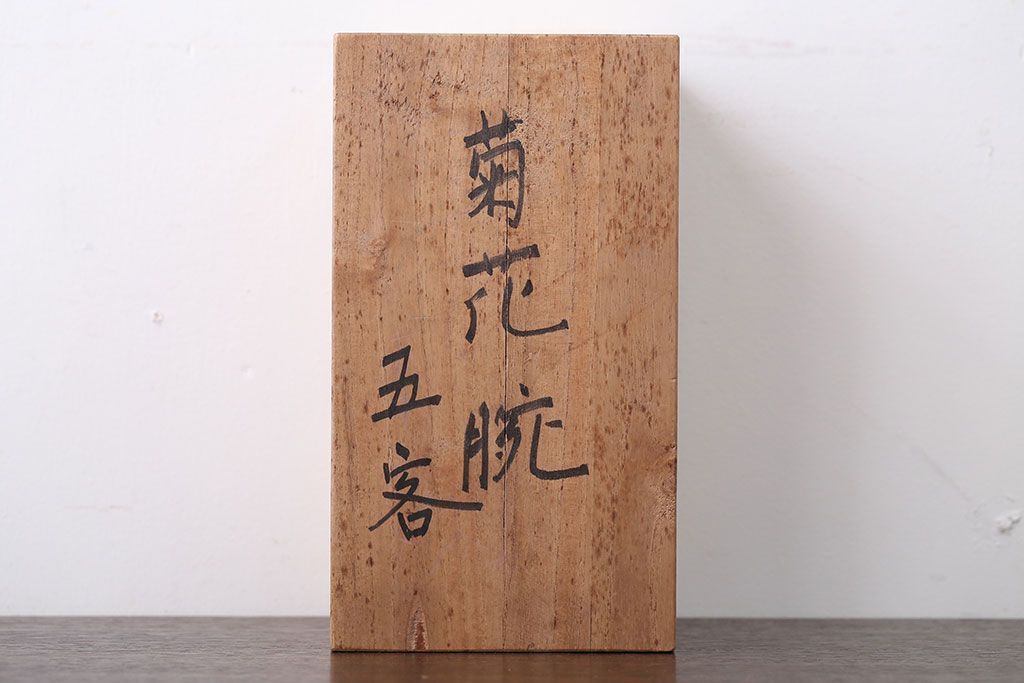 菊花腕
五客